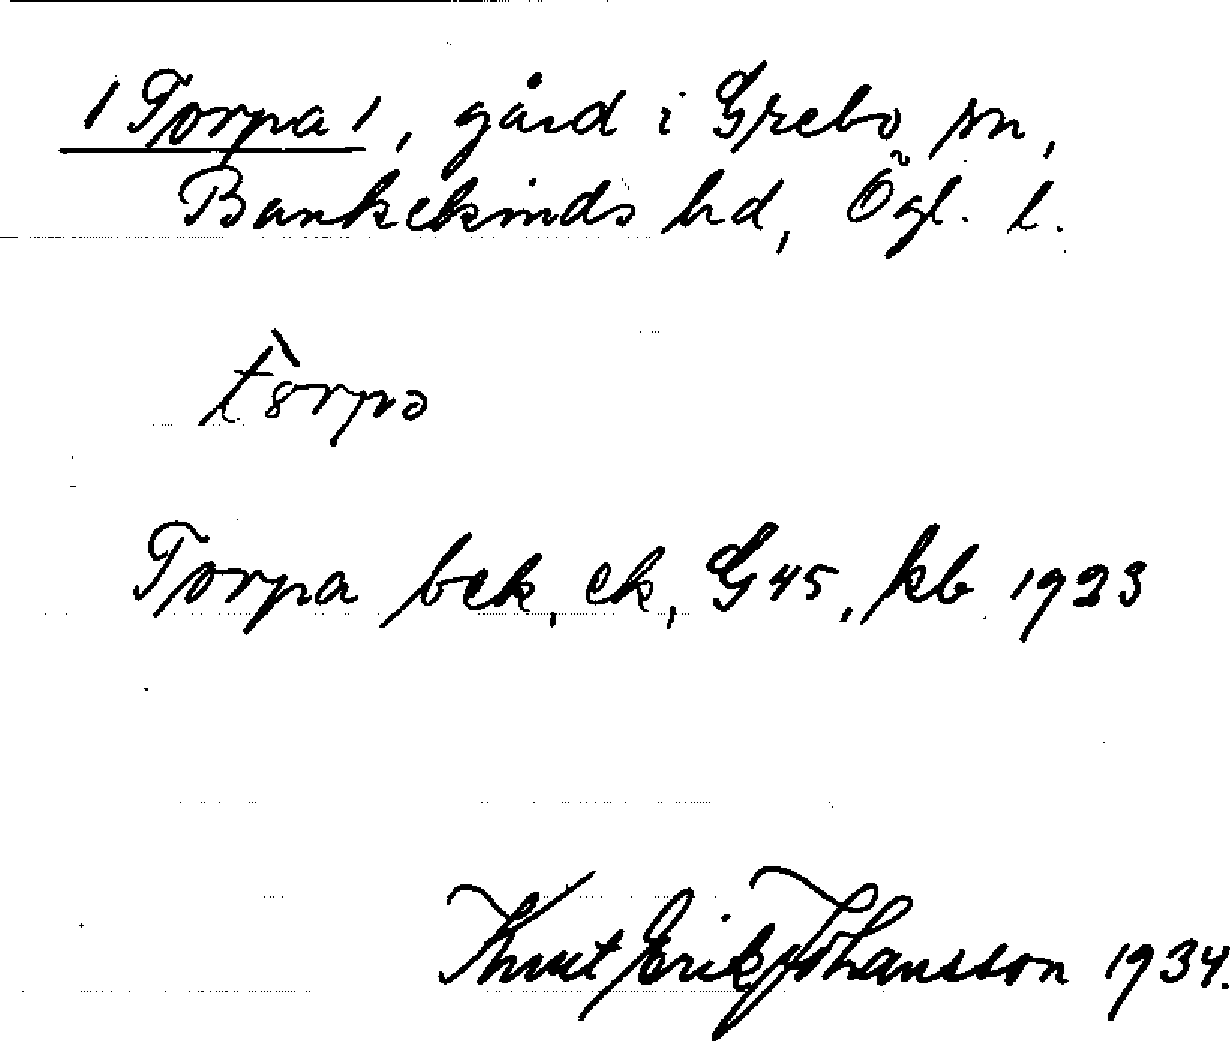 /Torpa/, gård i Grebo sn,
Bankekinds hd, Ögl. l.
tòrpə
Torpa bek, ek, G45, kb 1923
Knut Erik Johansson 1934.